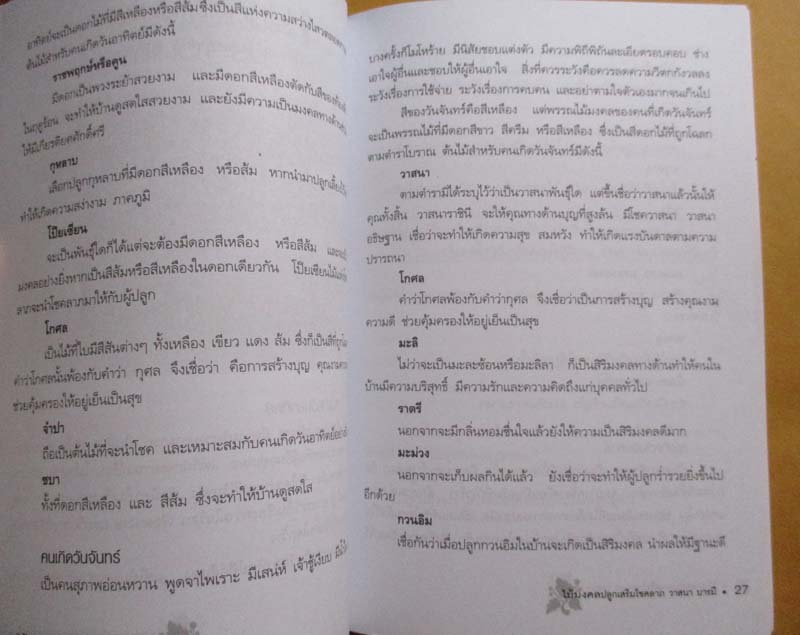 อาทิตย์จะเป็นดอกไม้ที่มีสีเหลืองหรือสีส้ม ซึ่งเป็นสีแห่งความสว่างไสว
ต้นไม้สำหรับคนเกิดวันอาทิตย์มีดังนี้
ราชพฤกษ์หรือคูน
มีดอกเป็นพวงระย้าสวยงาม และมีดอกสีเหลืองตัดกับสี
ในฤดูร้อน จะทำให้บ้านดูสดใสสวยงาม และยังมีความเป็นมงคลทางด้าน
ให้มีเกียรติยศศักดิ์ศรี
กุหลาบ
เลือกปลูกกุหลาบที่มีดอกสีเหลือง หรือส้ม หากนำมาปลูกเลี้ยง
ทำให้เกิดความสง่างาม ภาคภูมิ
โป๊ยเซียน
จะเป็นพันธุ์ใดก็ได้แต่จะต้องมีดอกสีเหลือง หรือสีส้ม และ
มงคลอย่างยิ่งหากเป็นสีส้มหรือสีเหลืองในดอกเดียวกัน โป๊ยเซียน
ลาภจะนำโชคลาภมาให้กับผู้ปลูก
โกศล
เป็นไม้ที่ใบมีสีสันต่างๆ ทั้งเหลือง เขียว แดง ส้ม ซึ่งก็เป็นสีที่
คำว่าโกศลนั้นพ้องกับคำว่า กุศล จึงเชื่อว่า คือการสร้างบุญ คุณงาม
ช่วยคุ้มครองให้อยู่เย็นเป็นสุข
จำปา
ถือเป็นต้นไม้ที่จะนำโชค และเหมาะสมกับคนเกิดวันอาทิตย์
ชบา
ทั้งที่ดอกสีเหลือง และ สีส้ม ซึ่งจะทำให้บ้านดูสดใส
คนเกิดวันจันทร์
เป็นคนสุภาพอ่อนหวาน พูดจาไพเราะ มีเสน่ห์ เจ้าชู้เงียบ
บางครั้งก็โมโหร้าย มีนิสัยชอบแต่งตัว มีความพิถีพิถันละเอียดรอบคอบ ช่าง
เอาใจผู้อื่นและชอบให้ผู้อื่นเอาใจ สิ่งที่ควรระวังคือควรลดความวิตกกังวลลง
ระวังเรื่องการใช้จ่าย ระวังเรื่องการคบคน และอย่าตามใจตัวเองมากจนเกินไป
สีของวันจันทร์คือสีเหลือง แต่พรรณไม้มงคลของคนที่เกิดวันจันทร์
จะเป็นพรรณไม้ที่มีดอกสีขาว สีครีม หรือสีเหลือง ซึ่งเป็นสีดอกไม้ที่ถูกโฉลก
ตามตำราโบราณ ต้นไม้สำหรับคนเกิดวันจันทร์มีดังนี้
วาสนา
ตามตำรามิได้ระบุไว้ว่าเป็นวาสนาพันธุ์ใด แต่ขึ้นชื่อว่าวาสนาแล้วนั้นให้
คุณทั้งสิ้น วาสนาราชินี จะให้คุณทางด้านบุญที่สูงล้น มีโชควาสนา วาสนา
อธิษฐาน เชื่อว่าจะทำให้เกิดความสุข สมหวัง ทำให้เกิดแรงบันดาลตามความ
ปรารถนา
โกศล
คำว่าโกศลพ้องกับคำว่ากุศล จึงเชื่อว่าเป็นการสร้างบุญ สร้างคุณงาม
ความดี ช่วยคุ้มครองให้อยู่เย็นเป็นสุข
มะลิ
ไม่ว่าจะเป็นมะละซ้อนหรือมะลิลา ก็เป็นสิริมงคลทางด้านทำให้คนใน
บ้านมีความบริสุทธิ์ มีความรักและความคิดถึงแก่บุคคลทั่วไป
ราตรี
นอกจากจะมีกลิ่นหอมชื่นใจแล้วยังให้ความเป็นสิริมงคลดีมาก
มะม่วง
นอกจากจะเก็บผลกินได้แล้ว ยังเชื่อว่าจะทำให้ผู้ปลูกร่ำรวยยิ่งขึ้นไป
อีกด้วย
กวนอิม
เชื่อกันว่าเมื่อปลูกกวนอิมในบ้านจะเกิดเป็นสิริมงคล นำผลให้มีฐานะดี
ไม้มงคลปลูกเสริมโชคลาภ วาสนา บารมี • 27